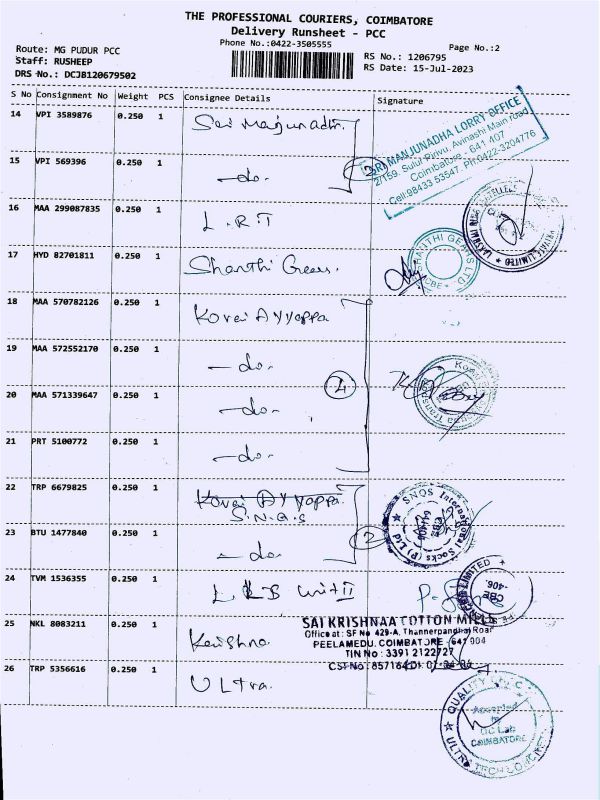 THE PROFESSIONAL COURIERS, COIMBATORE
Delivery Runsheet - PCC
Phone No.:0422-3505555
Page No.:2
Route: MG PUDUR PCC
Staff: RUSHEEP
DRS No.: DCJB120679502
RS No.: 1206795
RS Date: 15-Jul-2023
S No Consignment No Weight PCS Consignee Details Signature
14 VPI 3589876 0.250 1 Sri Manjunadh.
15 VPI 569396 0.250 1 -do.
2
SRI MANJUNADHA LORRY OFFICE
2/159, Sulur Pirivu, Avinashi Main road
Coimbatore - 641 407
Cell:98433 53547. Ph:0422-3204776
16 MAA 299087835 0.250 1 L.R.T
17 HYD 82701811 0.250 1 Shanthi Gears.
SHANTHI GEARS LTD
CBE
18 MAA 570782126 0.250 1 Kovai Ayyappa
19 MAA 572552170 0.250 1 -do.
20 MAA 571339647 0.250 1 -do-
21 PRT 5100772 0.250 1 -do.
4
22 TRP 6679825 0.250 1 Kovai Ayyappa
S.N.Q.S
23 BTU 1477840 0.250 1 -do.
2
SNQS International Socks (P) Ltd
24 TVM 1536355 0.250 1 Unit II
CBE
406.
25 NKL 8083211 0.250 1 Krishna
SAI KRISHNAA COTTON MILL
Office at : SF No 429-A, Thannerpandhal Road
PEELAMEDU, COIMBATORE 641 004
TIN No : 3391 2122727
CST No : 857164
26 TRP 5356616 0.250 1 Ultra.
QUALITY
Accepted
QC Lab
COIMBATORE
ULTRA TECH